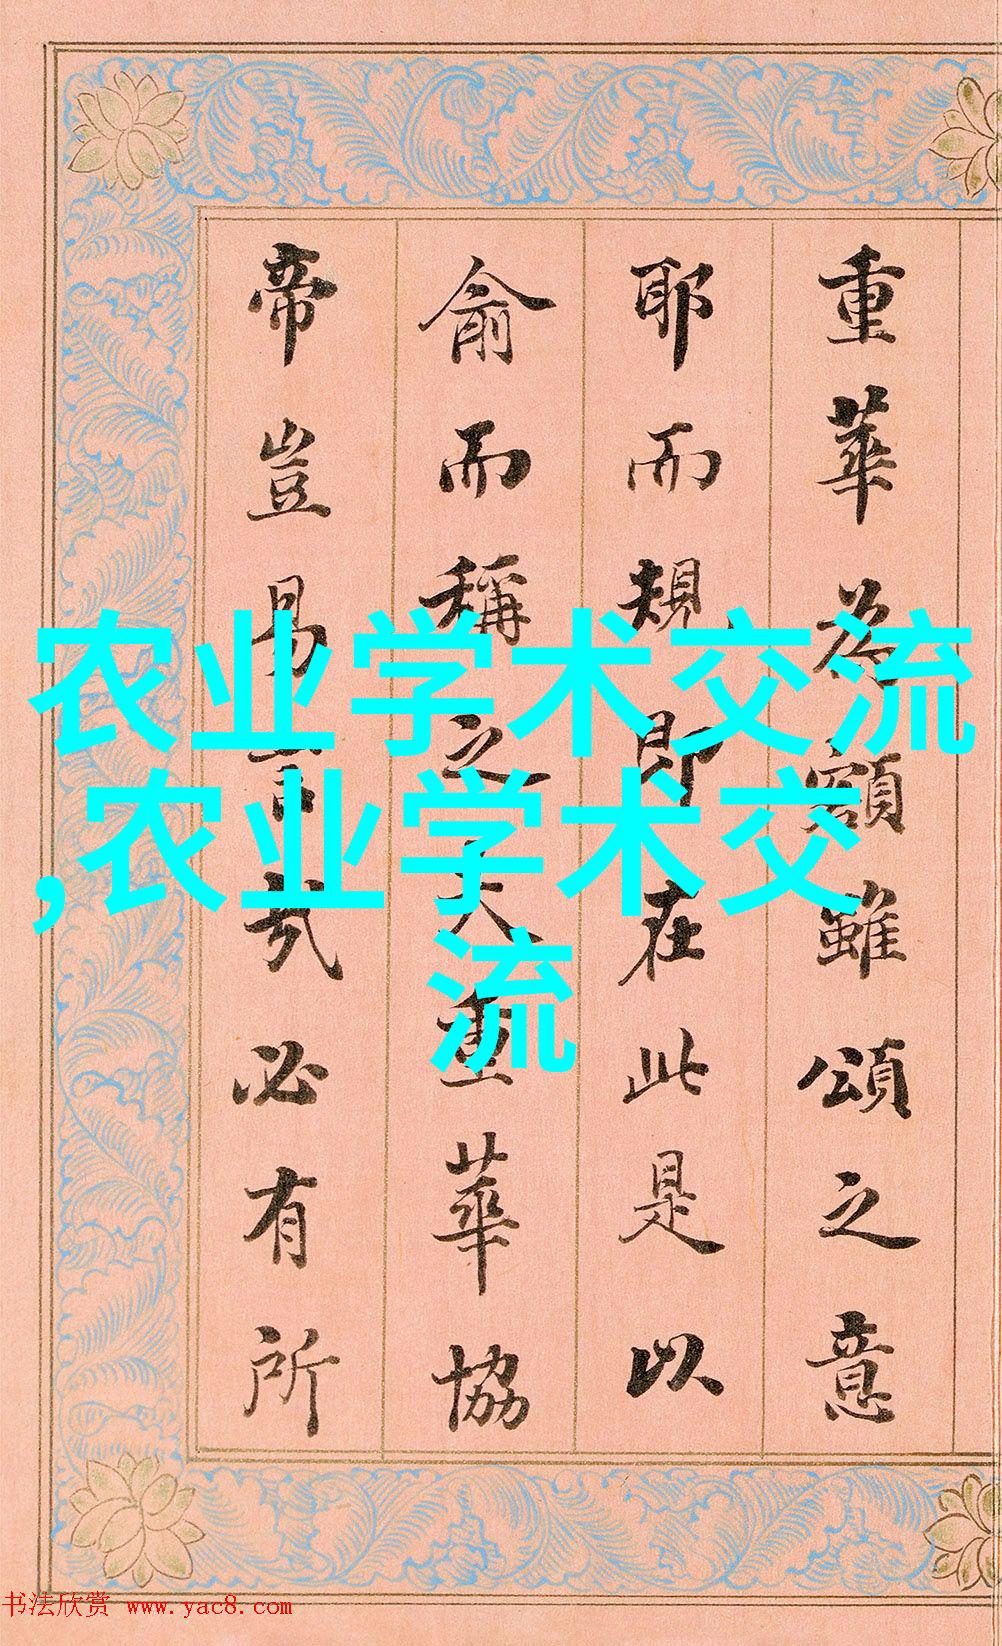 重華為額雖頌之意
耶而規即在此是以
俞而稱之大重華協
帝豈易言哉必有所
农业学术交流
,农业学术交
流
书法欣赏 www.yac8.com